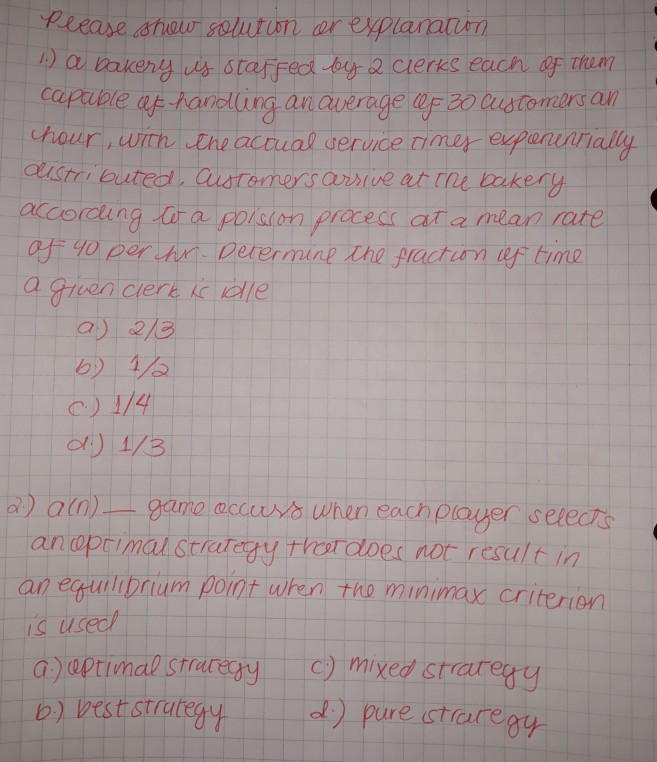 please show solution or explanation
1.) a bakery is staffed by 2 clerks each of them
capable of handling an average of 30 customers an
hour, with the actual service times exponentially
distributed. Customers arrive at the bakery
according to a poisson process at a mean rate
of 40 per hr. Determine the fraction of time
a given clerk is idle
a.) 2/3
b.) 1/2
c.) 1/4
d.) 1/3
2.) a(n) — game occurs when each player selects
an optimal strategy that does not result in
an equilibrium point when the minimax criterion
is used
a.) optimal strategy c.) mixed strategy
b.) best strategy d.) pure strategy